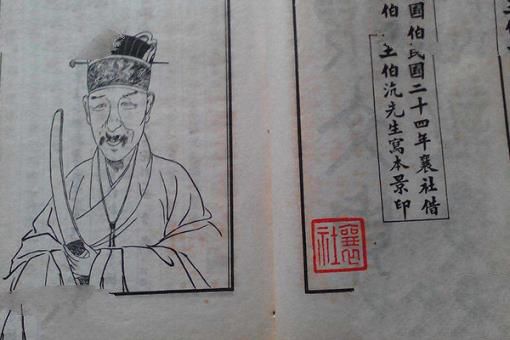 國伯民國二十四年襄社借
伯
伯沆先生寫本景印
襄社